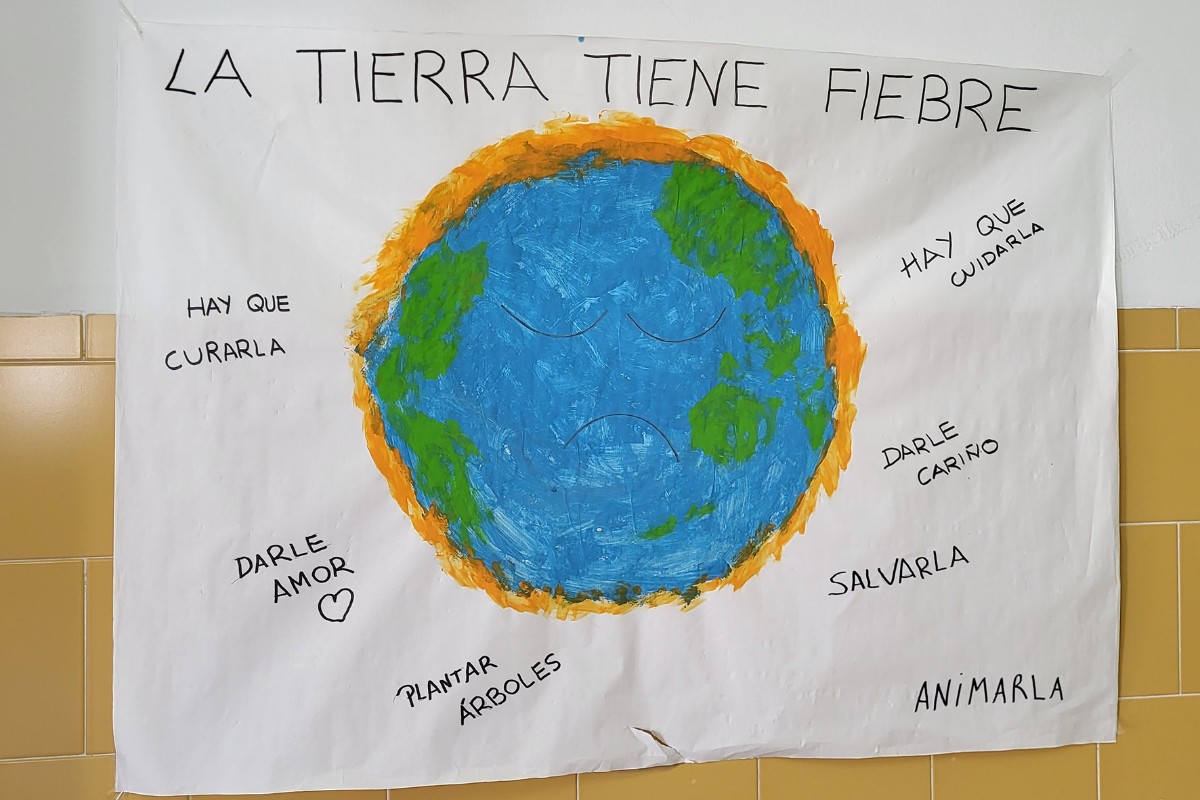 LA TIERRA TIENE FIEBRE
HAY QUE
CUIDARLA
HAY QUE
CURARLA
DARLE
CARIÑO
DARLE
AMOR
SALVARLA
PLANTAR
ÁRBOLES
ANIMARLA